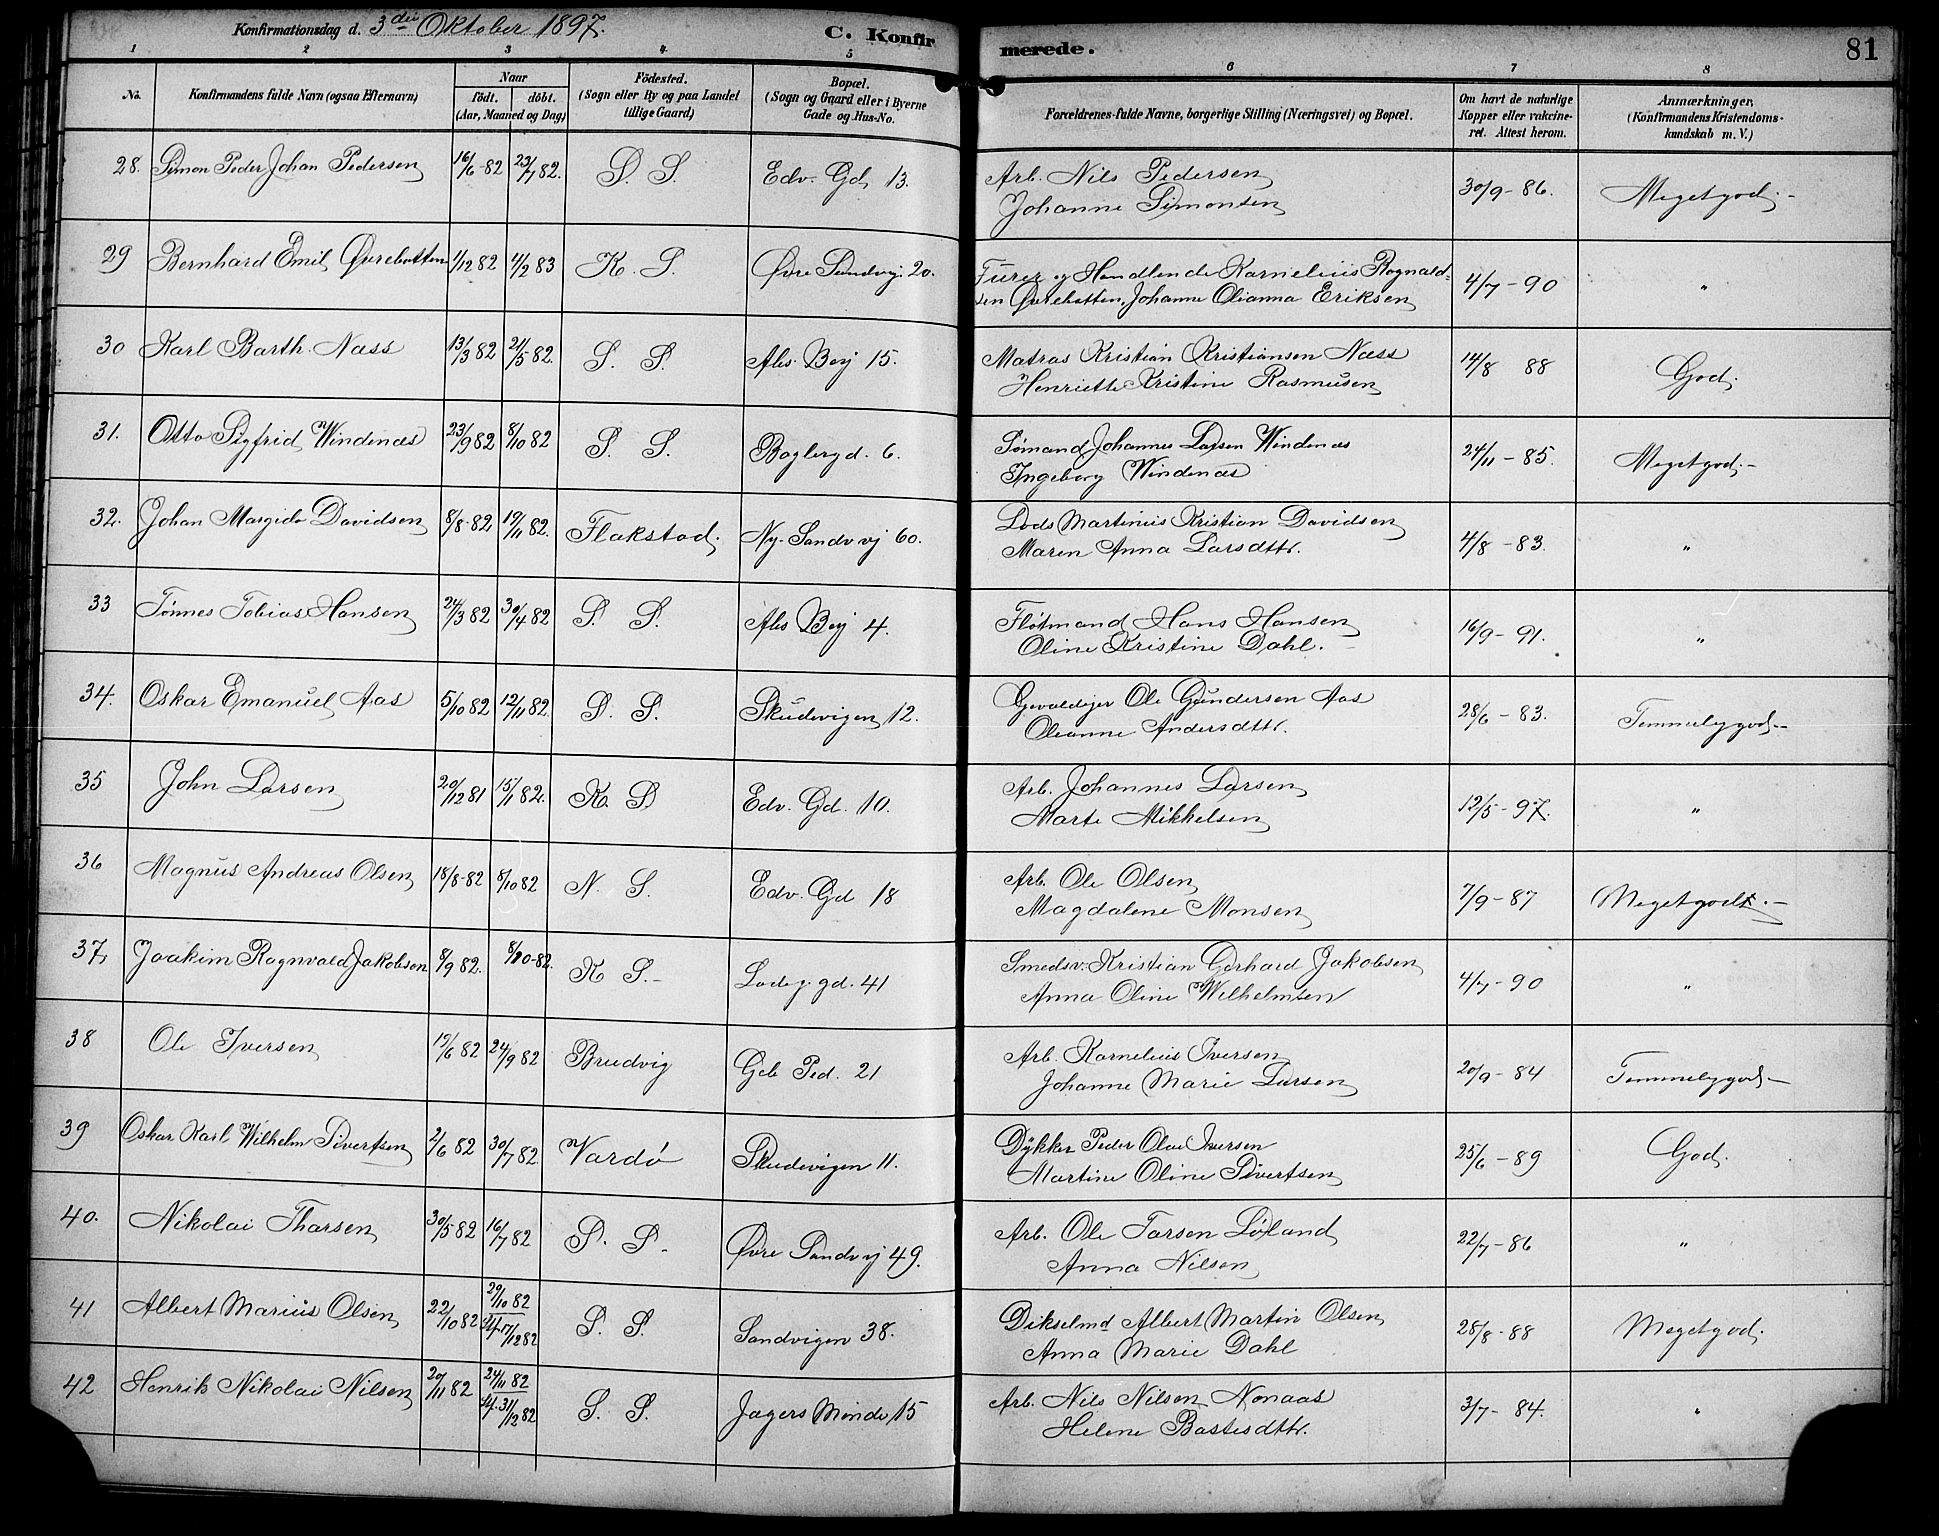 Konfirmationsdag d. 3die Oktober 1897. C. Konfirmerede. 81
1 2 3 4 5 6 7 8
No. Konfirmandens fulde Navn (ogsaa Efternavn) Naar födt. döbt. (Aar, Maaned og Dag) Födested. (Sogn eller By og paa Landet tillige Gaard) Bopæl. (Sogn og Gaard eller i Byerne Gade og Hus-No. Forældrenes fulde Navne, borgerlige Stilling (Næringsvei) og Bopæl. Om havt de naturlige Kopper eller vakcineret. Attest herom. Anmærkninger, (Konfirmandens Kristendomskundskab m. V.)
28. Simon Peder Johan Pedersen 16/6-82 23/7 82. S. S. Edv. Gd. 13. Arb. Nils Pedersen 30/9-86. Megetgod.-
Johanne Simonsen
29 Bernhard Emil Øvrebotten 1/12 82 4/2 83 K. S. Øvre Sandvj. 20. Furer og Handlende Kornelius Rognald- 4/7-90 "
sen Øvrebotten, Johanne Olianna Eriksen
30 Karl Barth. Næss 13/3 82 21/5 82. S. S. Abs. Bej 15. Matros Kristian Kristiansen Næss 14/8 88 God.
Henriette Kristine Rasmusen
31. Otto Sigfrid Windenæs 23/9 82 8/10 82 S. S. Baglergd. 6. Sømand Johannes Larsen Windenæs 24/11-85. Megetgod.-
Ingeborg Windenæs
32. Johan Margido Davidsen 8/8-82 19/11 82. Flakstad. Ny-Sandvvj 60. Lods Martinius Kristian Davidsen 4/8-83. "
Maren Anna Larsdttr.
33 Tønnes Tobias Hansen 24/3 82 30/4 82 S. S. Abs Bej 4. Fløtmand Hans Hansen 16/9-91. "
Oline Kristine Dahl.
34. Oskar Emanuel Aas 5/10 82 12/11 82. S. S. Skudevigen 12. Gevaldiger Ole Gundersen Aas 28/6-83. Temmeligod.-
Oleanne Andersdttr.
35 John Larsen 20/12 81 15/1 82. K. S Edv. Gd. 10. Arb. Johannes Larsen 12/5-97. "
Marte Mikkelsen
36 Magnus Andreas Olsen 18/8-82 8/10 82 N. S. Edv. Gd 18 Arb. Ole Olsen 7/9-87 Megetgodt.-
Magdalene Monsen
37. Joakim Ragnvald Jakobsen 8/9 82. 8/10-82. K S.- Ladeg. gd. 41 Smedsv. Kristian Gerhard Jakobsen 4/7-90 "
Anna Oline Wilhelmsen
38 Ole Iversen 19/6 82 24/9 82 Brudvig Geb Ped. 21 Arb. Kornelius Iversen 20/9-84 Temmeligod-
Johanne Marie Larsen
39 Oskar Karl Wilhelm Sivertsen 2/6 82 30/7 82. Vardø Skudevigen 11. Dykker Peder Olai Iversen 25/6-89 God.
Martine Oline Sivertsen
40. Nikolai Tharsen 30/5 82 16/7 82 S. S. Øvre Sandvvj 49. Arb. Ole Tarsen Løland 22/7-86 "
Anna Nilsen
41 Albert Marius Olsen 22/10 82 29/10 82 S. S. Sandvigen 38. Dikselmd Albert Martin Olsen 28/8-88 Megetgod.
17/12 82 Anna Marie Dahl
42 Henrik Nikolai Nilsen 20/11 82 24/11 82 S. S. Jagers Minde 15 Arb. Nils Nilsen Nonaas 3/7-84. "
31/12 82 Helene Bastesdttr.